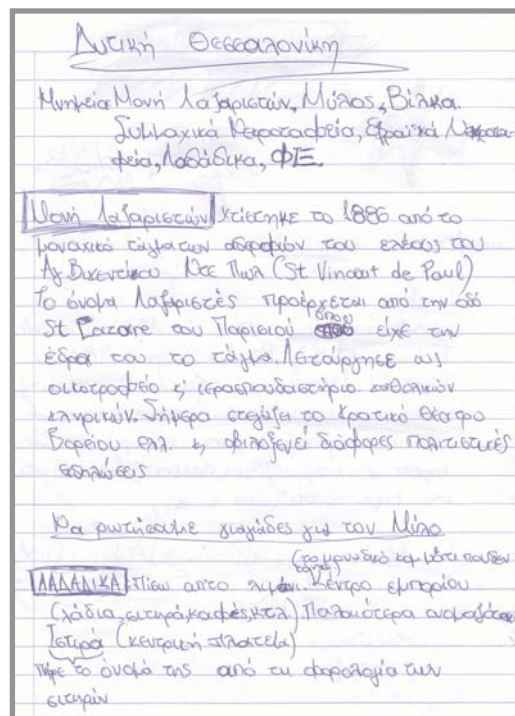 Δυτική Θεσσαλονίκη
Μνημεία: Μονή Λαζαριστών, Μύλος, Βίλκα.
Συμμαχικά Νεκροταφεία, Εβραϊκά Νεκροτα-
φεία, Λαδάδικα, ΦΙΞ.
Μονή Λαζαριστών Χτίστηκε το 1886 από το
μοναχικό τάγμα των αδερφών του ελέους του
Αγ. Βικεντίου Ντε Πωλ (St Vincent de Paul)
Το όνομα Λαζαριστές προέρχεται από την οδό
St Lazare του Παρισιού όπου είχε την
έδρα του το τάγμα. Λειτούργησε ως
οικοτροφείο κ' ιεροσπουδαστήριο καθολικών
κληρικών. Σήμερα στεγάζει το Κρατικό Θέατρο
Βορείου Ελλ. κ φιλοξενεί διάφορες πολιτιστικές
εκδηλώσεις
Να ρωτήσουμε γιαγιάδες για τον Μύλο
(το μοναδικό κομμάτι που δεν
ΛΑΔΑΔΙΚΑ: Πίσω απ'το λιμάνι. Κέντρο εμπορίου
(λάδια, σιτηρά, καφές, κτλ). Παλαιότερα ονομαζόταν
Ιστιρά (κεντρική πλατεία)
πήρε το όνομά της από τη φορολογία των
σιτηρών